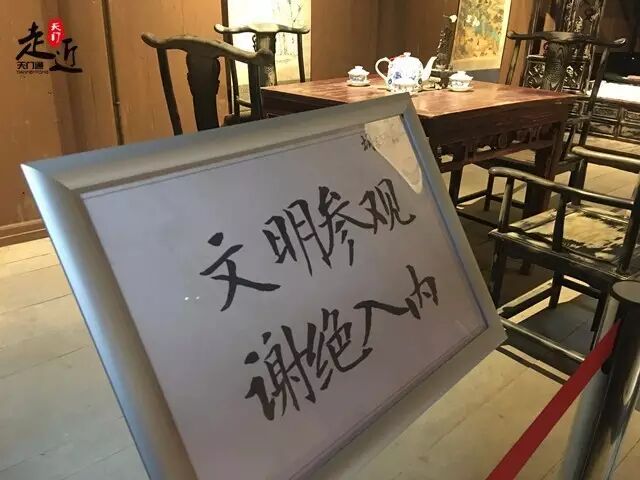 走近
天门
天门通
TIANMENTONG
文明参观
谢绝入内